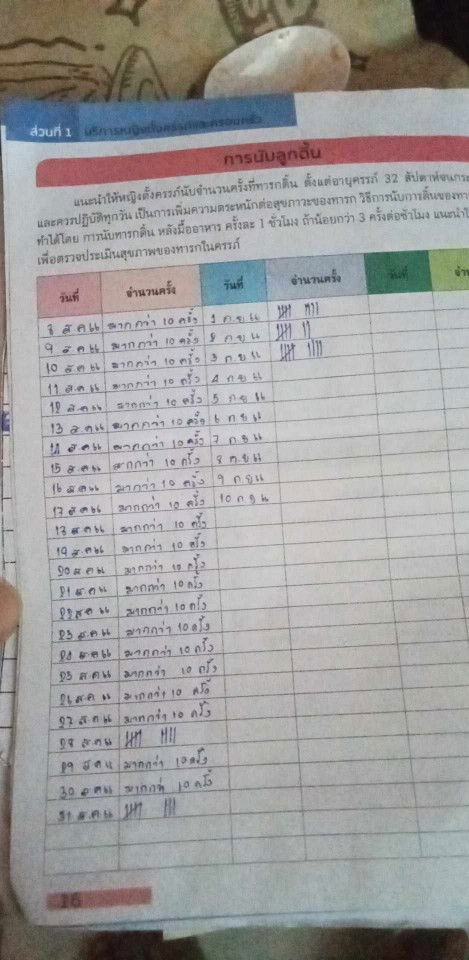 ส่วนที่ 1 บริการหญิงตั้งครรภ์และครอบครัว
การนับลูกดิ้น
แนะนำให้หญิงตั้งครรภ์นับจำนวนครั้งที่ทารกดิ้น ตั้งแต่อายุครรภ์ 32 สัปดาห์จนกระ
และควรปฏิบัติทุกวัน เป็นการเพิ่มความตระหนักต่อสุขภาวะของทารก วิธีการนับการดิ้นของทาร
ทำได้โดย การนับทารกดิ้น หลังมื้ออาหาร ครั้งละ 1 ชั่วโมง ถ้าน้อยกว่า 3 ครั้งต่อชั่วโมง แนะนำใ
เพื่อตรวจประเมินสุขภาพของทารกในครรภ์
วันที่ จำนวนครั้ง วันที่ จำนวนครั้ง วันที่ จำน
8 ส ค 66 มากกว่า 10 ครั้ง 1 ก.ย 66
9 ส ค 66 มากกว่า 10 ครั้ง 2 ก ย 66
10 ส ค 66 มากกว่า 10 ครั้ง 3 ก.ย 66
11 ส ค 66 มากกว่า 10 ครั้ง 4 ก ย 66
12 ส ค 66 มากกว่า 10 ครั้ง 5 ก.ย 66
13 ส ค 66 มากกว่า 10 ครั้ง 6 ก ย 66
14 ส ค 66 มากกว่า 10 ครั้ง 7 ก.ย 66
15 ส ค 66 มากกว่า 10 ครั้ง 8 ก.ย 66
16 ส ค 66 มากกว่า 10 ครั้ง 9 ก.ย 66
17 ส ค 66 มากกว่า 10 ครั้ง 10 ก ย 66
18 ส ค 66 มากกว่า 10 ครั้ง
19 ส.ค 66 มากกว่า 10 ครั้ง
20 ส ค 66 มากกว่า 10 ครั้ง
21 ส ค 66 มากกว่า 10 ครั้ง
22 ส ค 66 มากกว่า 10 ครั้ง
23 ส ค 66 มากกว่า 10 ครั้ง
24 ส.ค 66 มากกว่า 10 ครั้ง
25 ส.ค 66 มากกว่า 10 ครั้ง
26 ส.ค 66 มากกว่า 10 ครั้ง
27 ส.ค 66 มากกว่า 10 ครั้ง
28 ส.ค 66
29 ส.ค 66 มากกว่า 10 ครั้ง
30 ส ค 66 10 ครั้ง
31 ส.ค 66
16